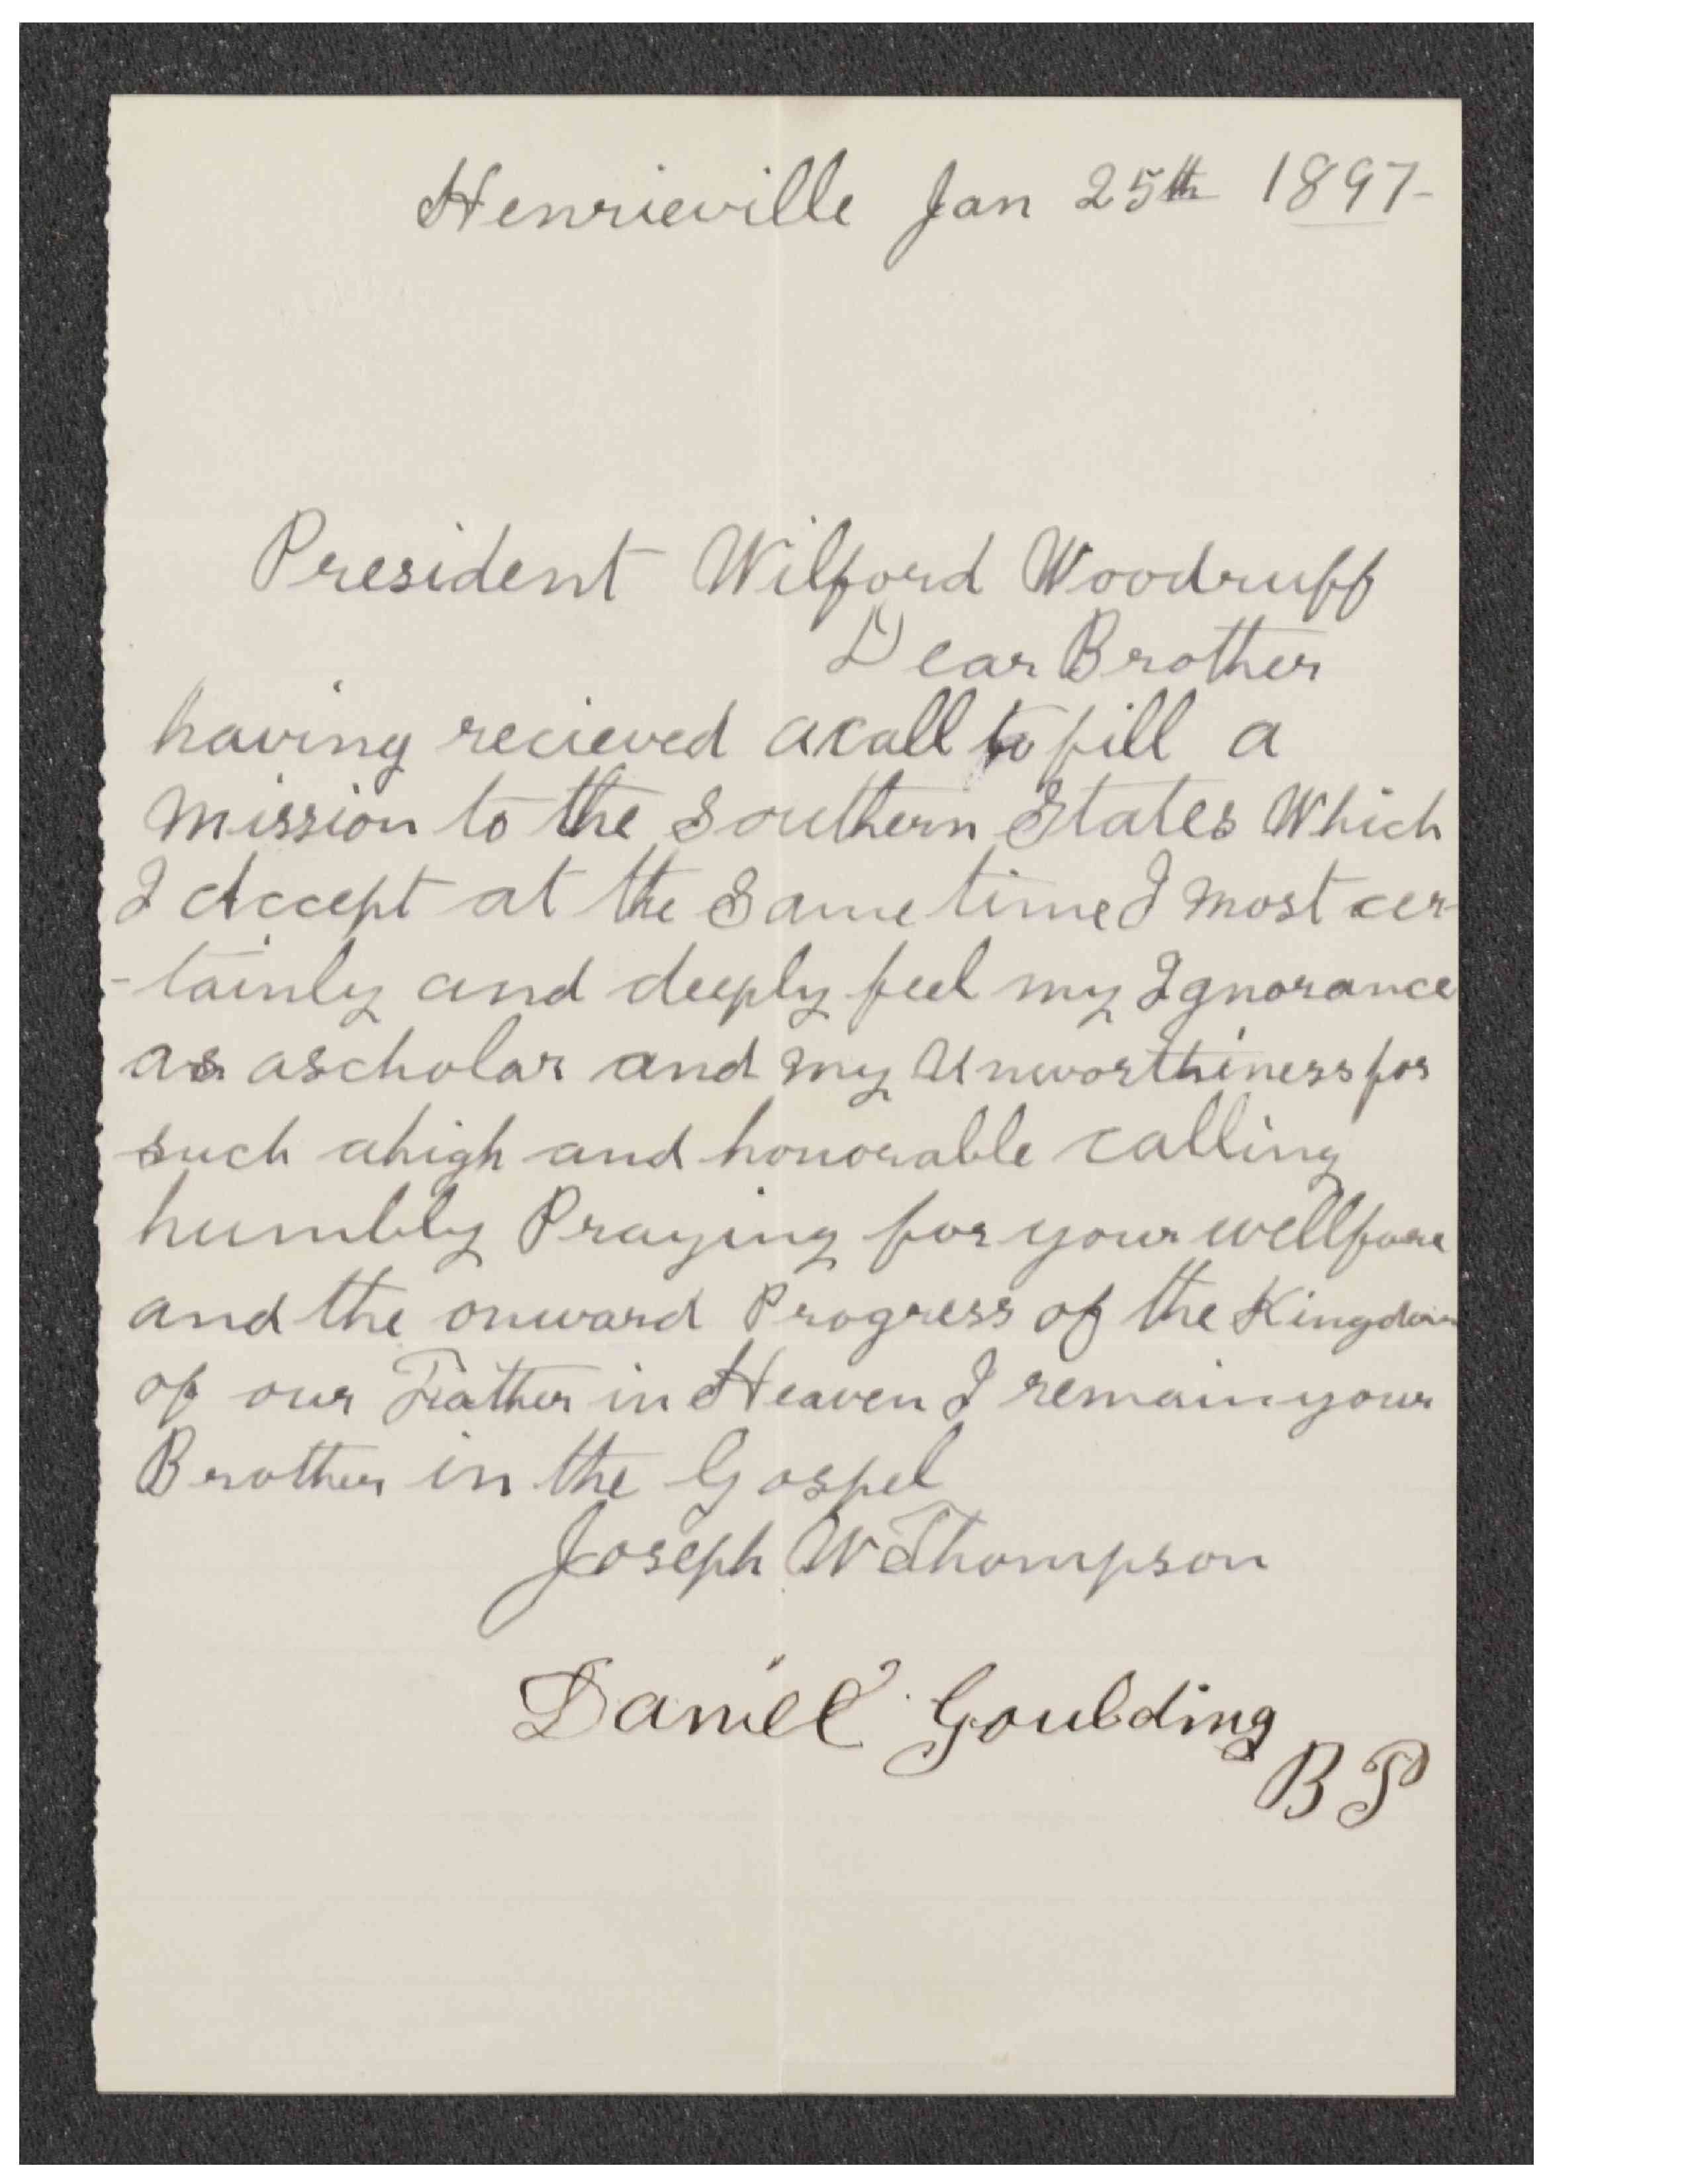 Henrieville Jan 25th 1897-
President Wilford Woodruff
Dear Brother
having recieved a call to fill a
mission to the Southern States Which
I Accept at the Same time I most cer-
-tainly and deeply feel my Ignorance
as a scholar and my Unworthiness for
such a high and honorable calling
humbly Praying for your wellfare
and the onward Progress of the Kingdom
of our Father in Heaven I remain your
Brother in the Gospel
Joseph W Thompson
Daniel Goulding
BP